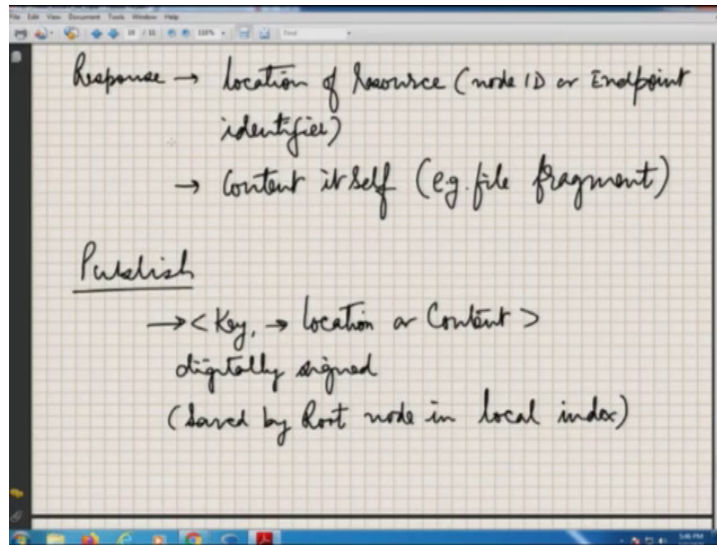 File Edit View Document Tools Window Help
10 / 11
118%
Find
Response → location of Resource (node ID or Endpoint
identifier)
→ Content itself (e.g. file fragment)
Publish
→ < Key, → location or Content >
digitally signed
(Saved by Root node in local index)
5:46 PM